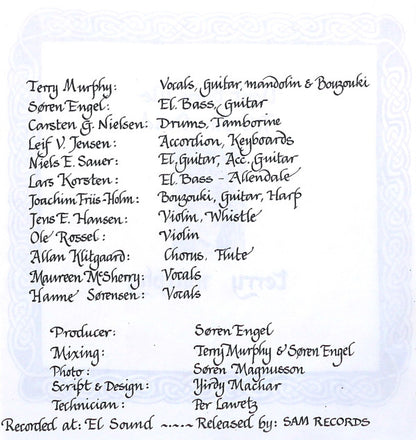 Terry Murphy: Vocals, Guitar, mandolin & Bouzouki
Søren Engel: El. Bass, Guitar
Carsten G. Nielsen: Drums, Tamborine
Leif V. Jensen: Accordion, Keyboards
Niels E. Sauer: El. Guitar, Acc. Guitar
Lars Korsten: El. Bass - Allendale
Joachim Friis-Holm: Bouzouki, Guitar, Harp
Jens E. Hansen: Violin, Whistle
Ole Rossel: Violin
Allan Klitgaard: Chorus, Flute
Maureen McSherry: Vocals
Hanne Sørensen: Vocals
Producer: Søren Engel
Mixing: Terry Murphy & Søren Engel
Photo: Søren Magnusson
Script & Design: Yirdy Machar
Technician: Per Lawetz
Recorded at: El Sound -·~·- Released by: SAM RECORDS